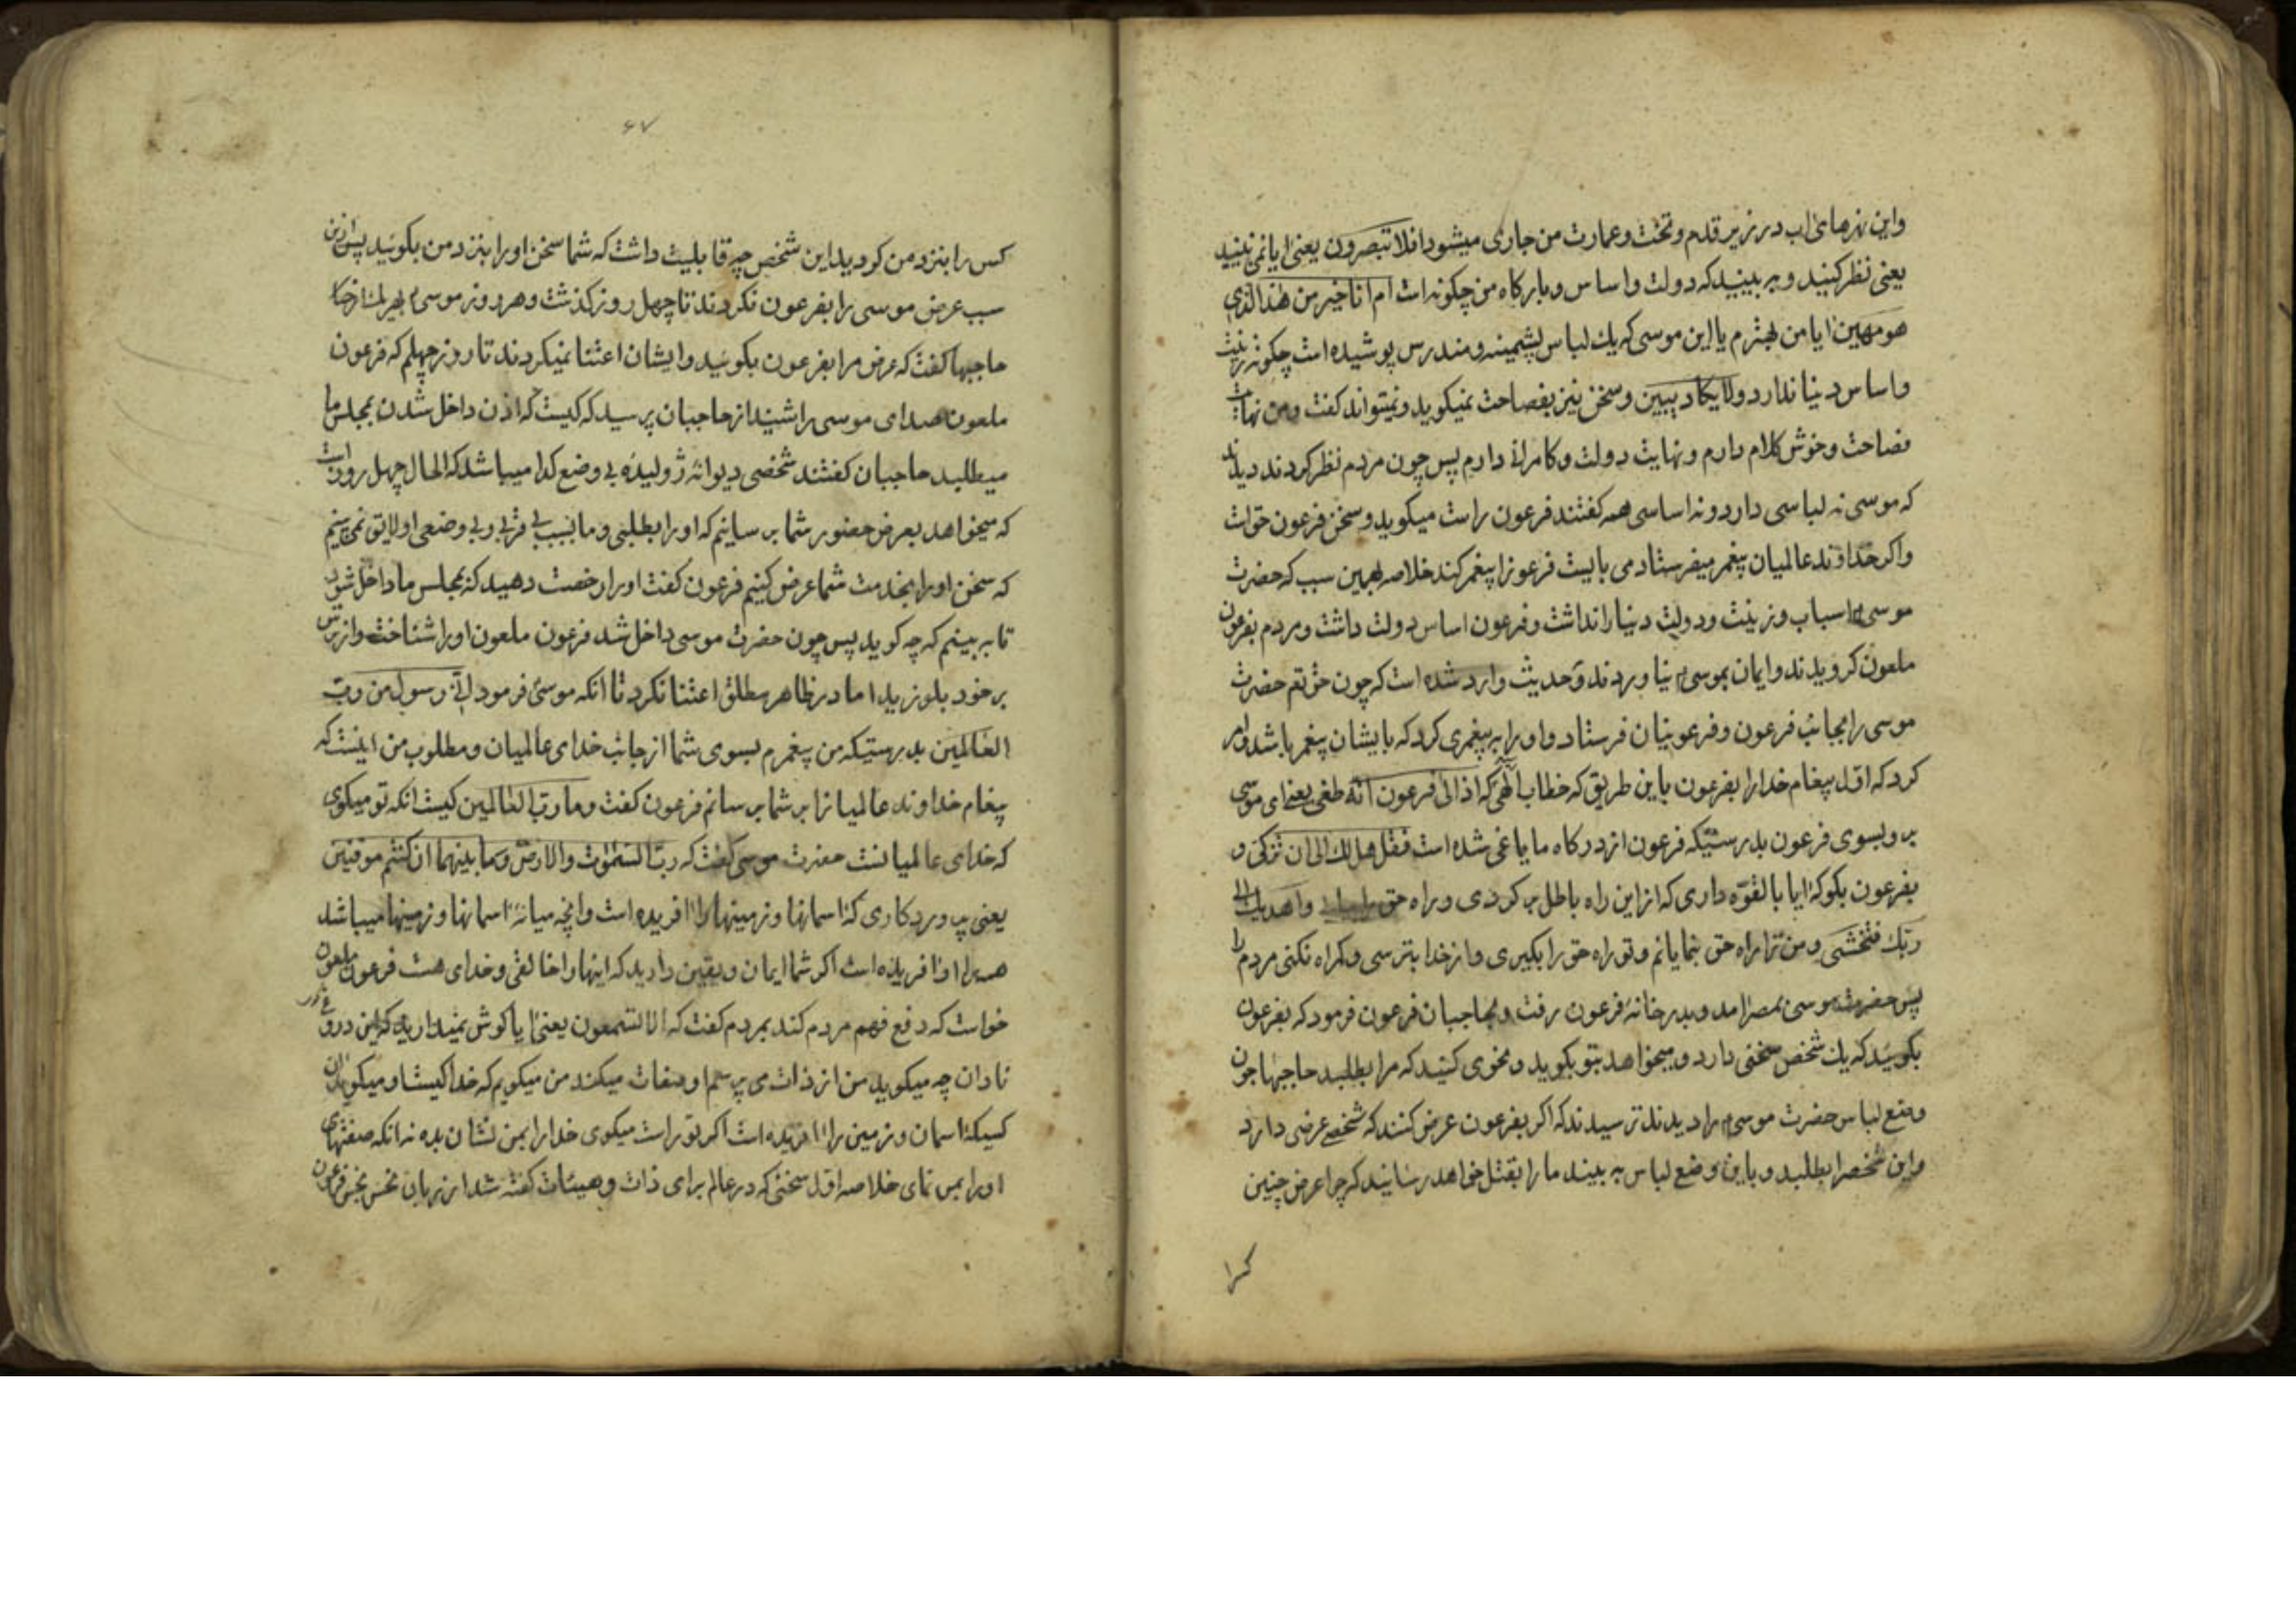 واین نهرهای اب در زیر قدم و تخت و عمارت من جاری میشود افلا تبصرون یعنی ایا نمی بینید
یعنی نظر کنید و به بینید که دولت و اساس و بارکاه من چکونه است ام انا خیر من هذا الذی
هو مهین ایا من بهترم یا این موسی که یك لباس پشمینه و مندرس پوشیده است چکونه زینت
و اساس دنیا ندارد ولا یکاد یبین و سخن نیز بفصاحت نمیکوید و نمیتواند کفت و من نهایت
فصاحت و خوش کلام دارم و نهایت دولت و کامرانی دارم پس چون مردم نظر کردند دیدند
که موسی نه لباسی دارد و نه اساسی همه کفتند فرعون راست میکوید و سخن فرعون حق است
و اکر خداوند عالمیان پیغمبر میفرستاد می بایست فرعونرا پیغمبر کند خلاصه بهمین سبب که حضرت
موسی اسباب و زینت و دولت دنیا را نداشت و فرعون اساس دولت داشت و مردم بفرعون
ملعون کرویدند و ایمان بموسی نیاوردند و حدیث وارد شده است که چون حق تعم حضرت
موسی را بجانب فرعون و فرعونیان فرستاد و او را به پیغمبری کرد که بایشان پیغمبر باشد و امر
کرد که اول پیغام خدا را بفرعون باین طریق که خطاب الهی که اذهب الی فرعون انه طغی یعنی ای موسی
برو بسوی فرعون بدرستیکه فرعون از درکاه ما یاغی شده است فقل هل لك الی ان تزکی و
بفرعون بکو که ایا بالقوّه داری که از این راه باطل برکردی و راه حق و اهدیك الی
ربّك فتخشی و من ترا براه حق بنمایانم و تو راه حق را بکیری و از خدا بترسی و کمراه نکنی مردم را
پس حضرت موسی بمصر امد و بدر خانهٔ فرعون رفت و بحاجبان فرعون فرمود که بفرعون
بکوئید که یك شخص سخنی دارد و میخواهد بتو بکوید و نحوی کنید که مرا بطلبد حاجبها چون
وضع لباس حضرت موسی را دیدند ترسیدند که اکر بفرعون عرض کنند که شخصی عرضی دارد
و این شخص را بطلبد و باین وضع لباس به بیند ما را بقتل خواهد رسانید که چرا عرض چنین
کس را
۶۷
کس را بنزد من کردید این شخص چه قابلیت داشت که شما سخن او را بنزد من بکوئید پس ازین
سبب عرض موسی را بفرعون نکردند تا چهل روز کذشت و هر روز موسی
حاجبها کفت که عرض مرا بفرعون بکوئید و ایشان اعتنا نمیکردند تا روز چهلم که فرعون
ملعون صدای موسی را شنید از حاجبان پرسید که کیست که اذن داخل شدن بمجلس ما
میطلبد حاجبان کفتند شخصی دیوانه ژولیدهٔ بی وضع کدا میباشد که الحال چهل روز است
که میخواهد بعرض حضور شما برسانیم که او را بطلبی و ما بسبب بی قربی و بی وضعی او لایق نمی بینیم
که سخن او را بخدمت شما عرض کنیم فرعون کفت او را رخصت دهید که بمجلس ما داخل شود
تا به بینم که چه کوید پس چون حضرت موسی داخل شد فرعون ملعون او را شناخت و از ترس
بر خود بلرزید اما در ظاهر مطلق اعتنا نکرد تا انکه موسی فرمود انّی رسول من ربّ
العالمین بدرستیکه من پیغمبرم بسوی شما از جانب خدای عالمیان و مطلوب من اینست که
پیغام خداوند عالمیانرا بر شما برسانم فرعون کفت و ما ربّ العالمین کیست انکه تو میکوی
که خدای عالمیانست حضرت موسی کفت که ربّ السّموات والارض و ما بینهما ان کنتم موقنین
یعنی پروردکاری که اسمانها و زمینها را افریده است و انچه میانهٔ اسمانها و زمینها میباشد
همه را او افریده است اکر شما ایمان و یقین دارید که اینها را خالقی و خدای هست فرعون ملعون
خواست که دفع فهم مردم کند بمردم کفت که الا تستمعون یعنی ایا کوش نمیدارید که این دروغ کو
نادان چه میکوید من از ذات می پرسم او صفات میکند من میکویم که خدا کیست او میکوید ان
کسیکه اسمان و زمین را افریده است اکر تو راست میکوی خدا را بمن نشان بده نه انکه صفتهای
او را بمن نمای خلاصه اول سخنی که در عالم برای ذات و هیئات کفته شد از زبان نحس نجس فرعون